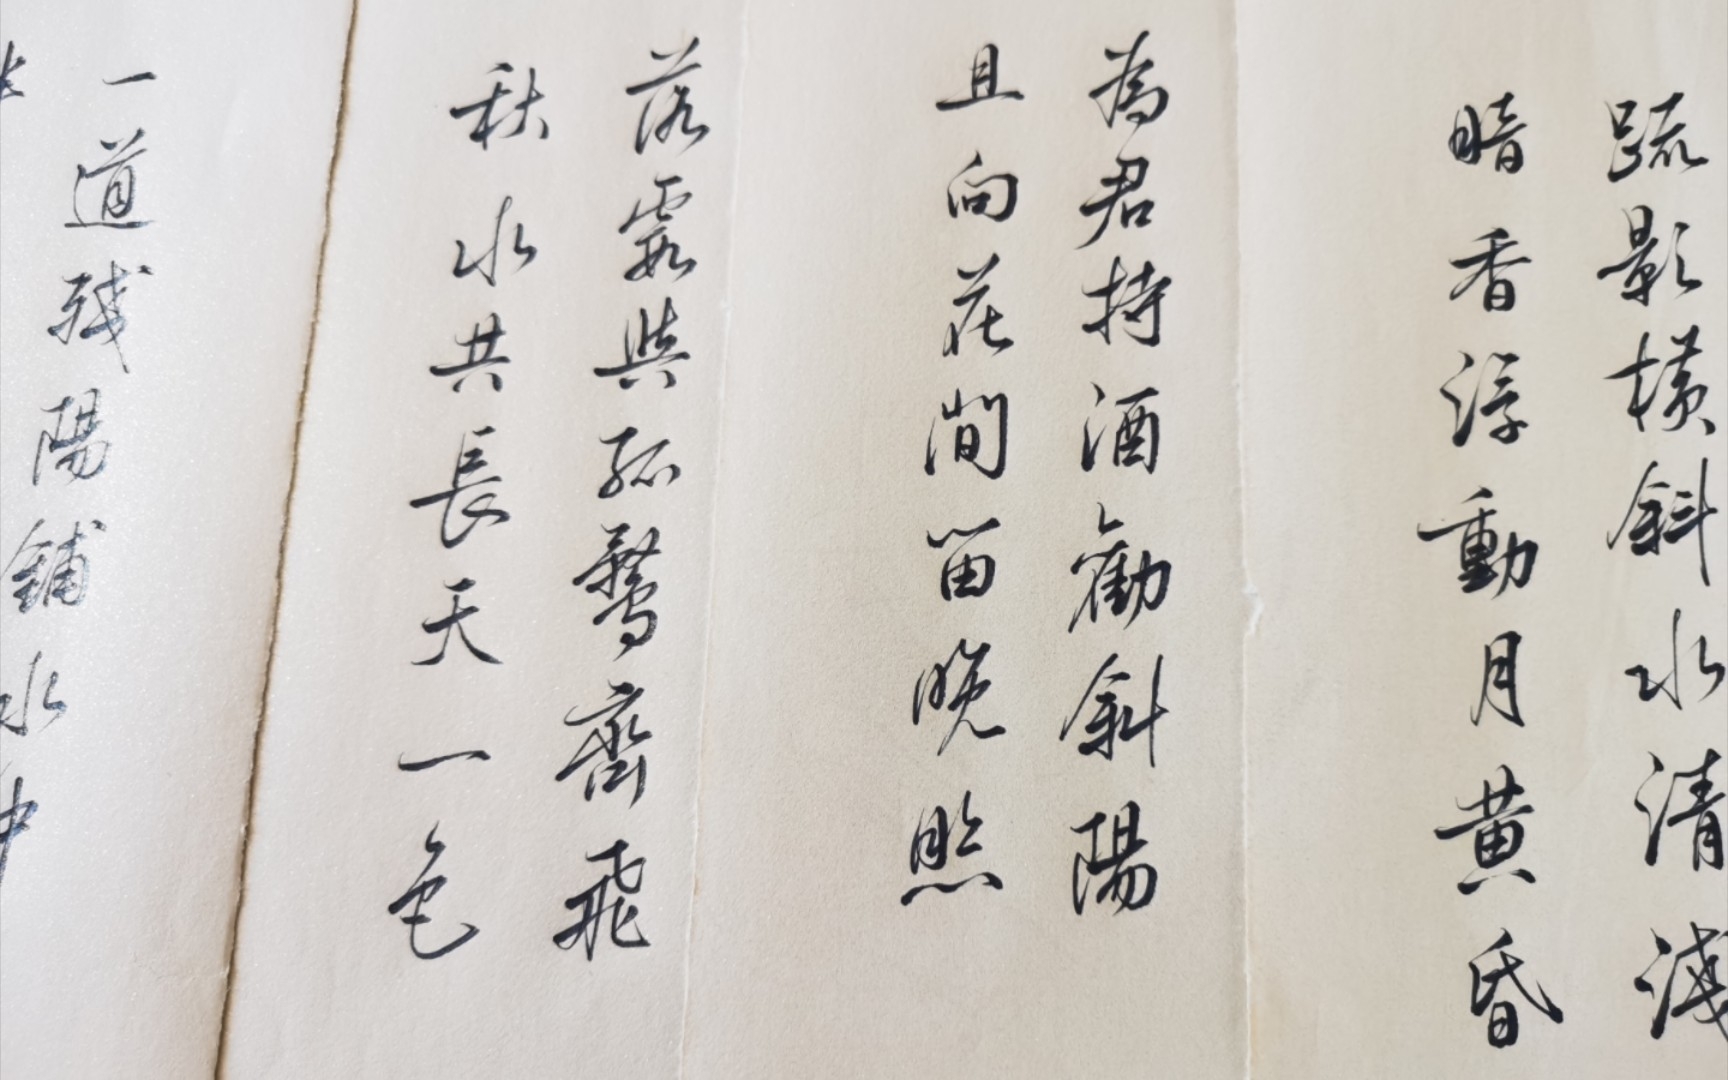 疏影橫斜水清淺
暗香浮動月黃昏
為君持酒勸斜陽
且向花間留晚照
落霞與孤鶩齊飛
秋水共長天一色
一道残陽鋪水中